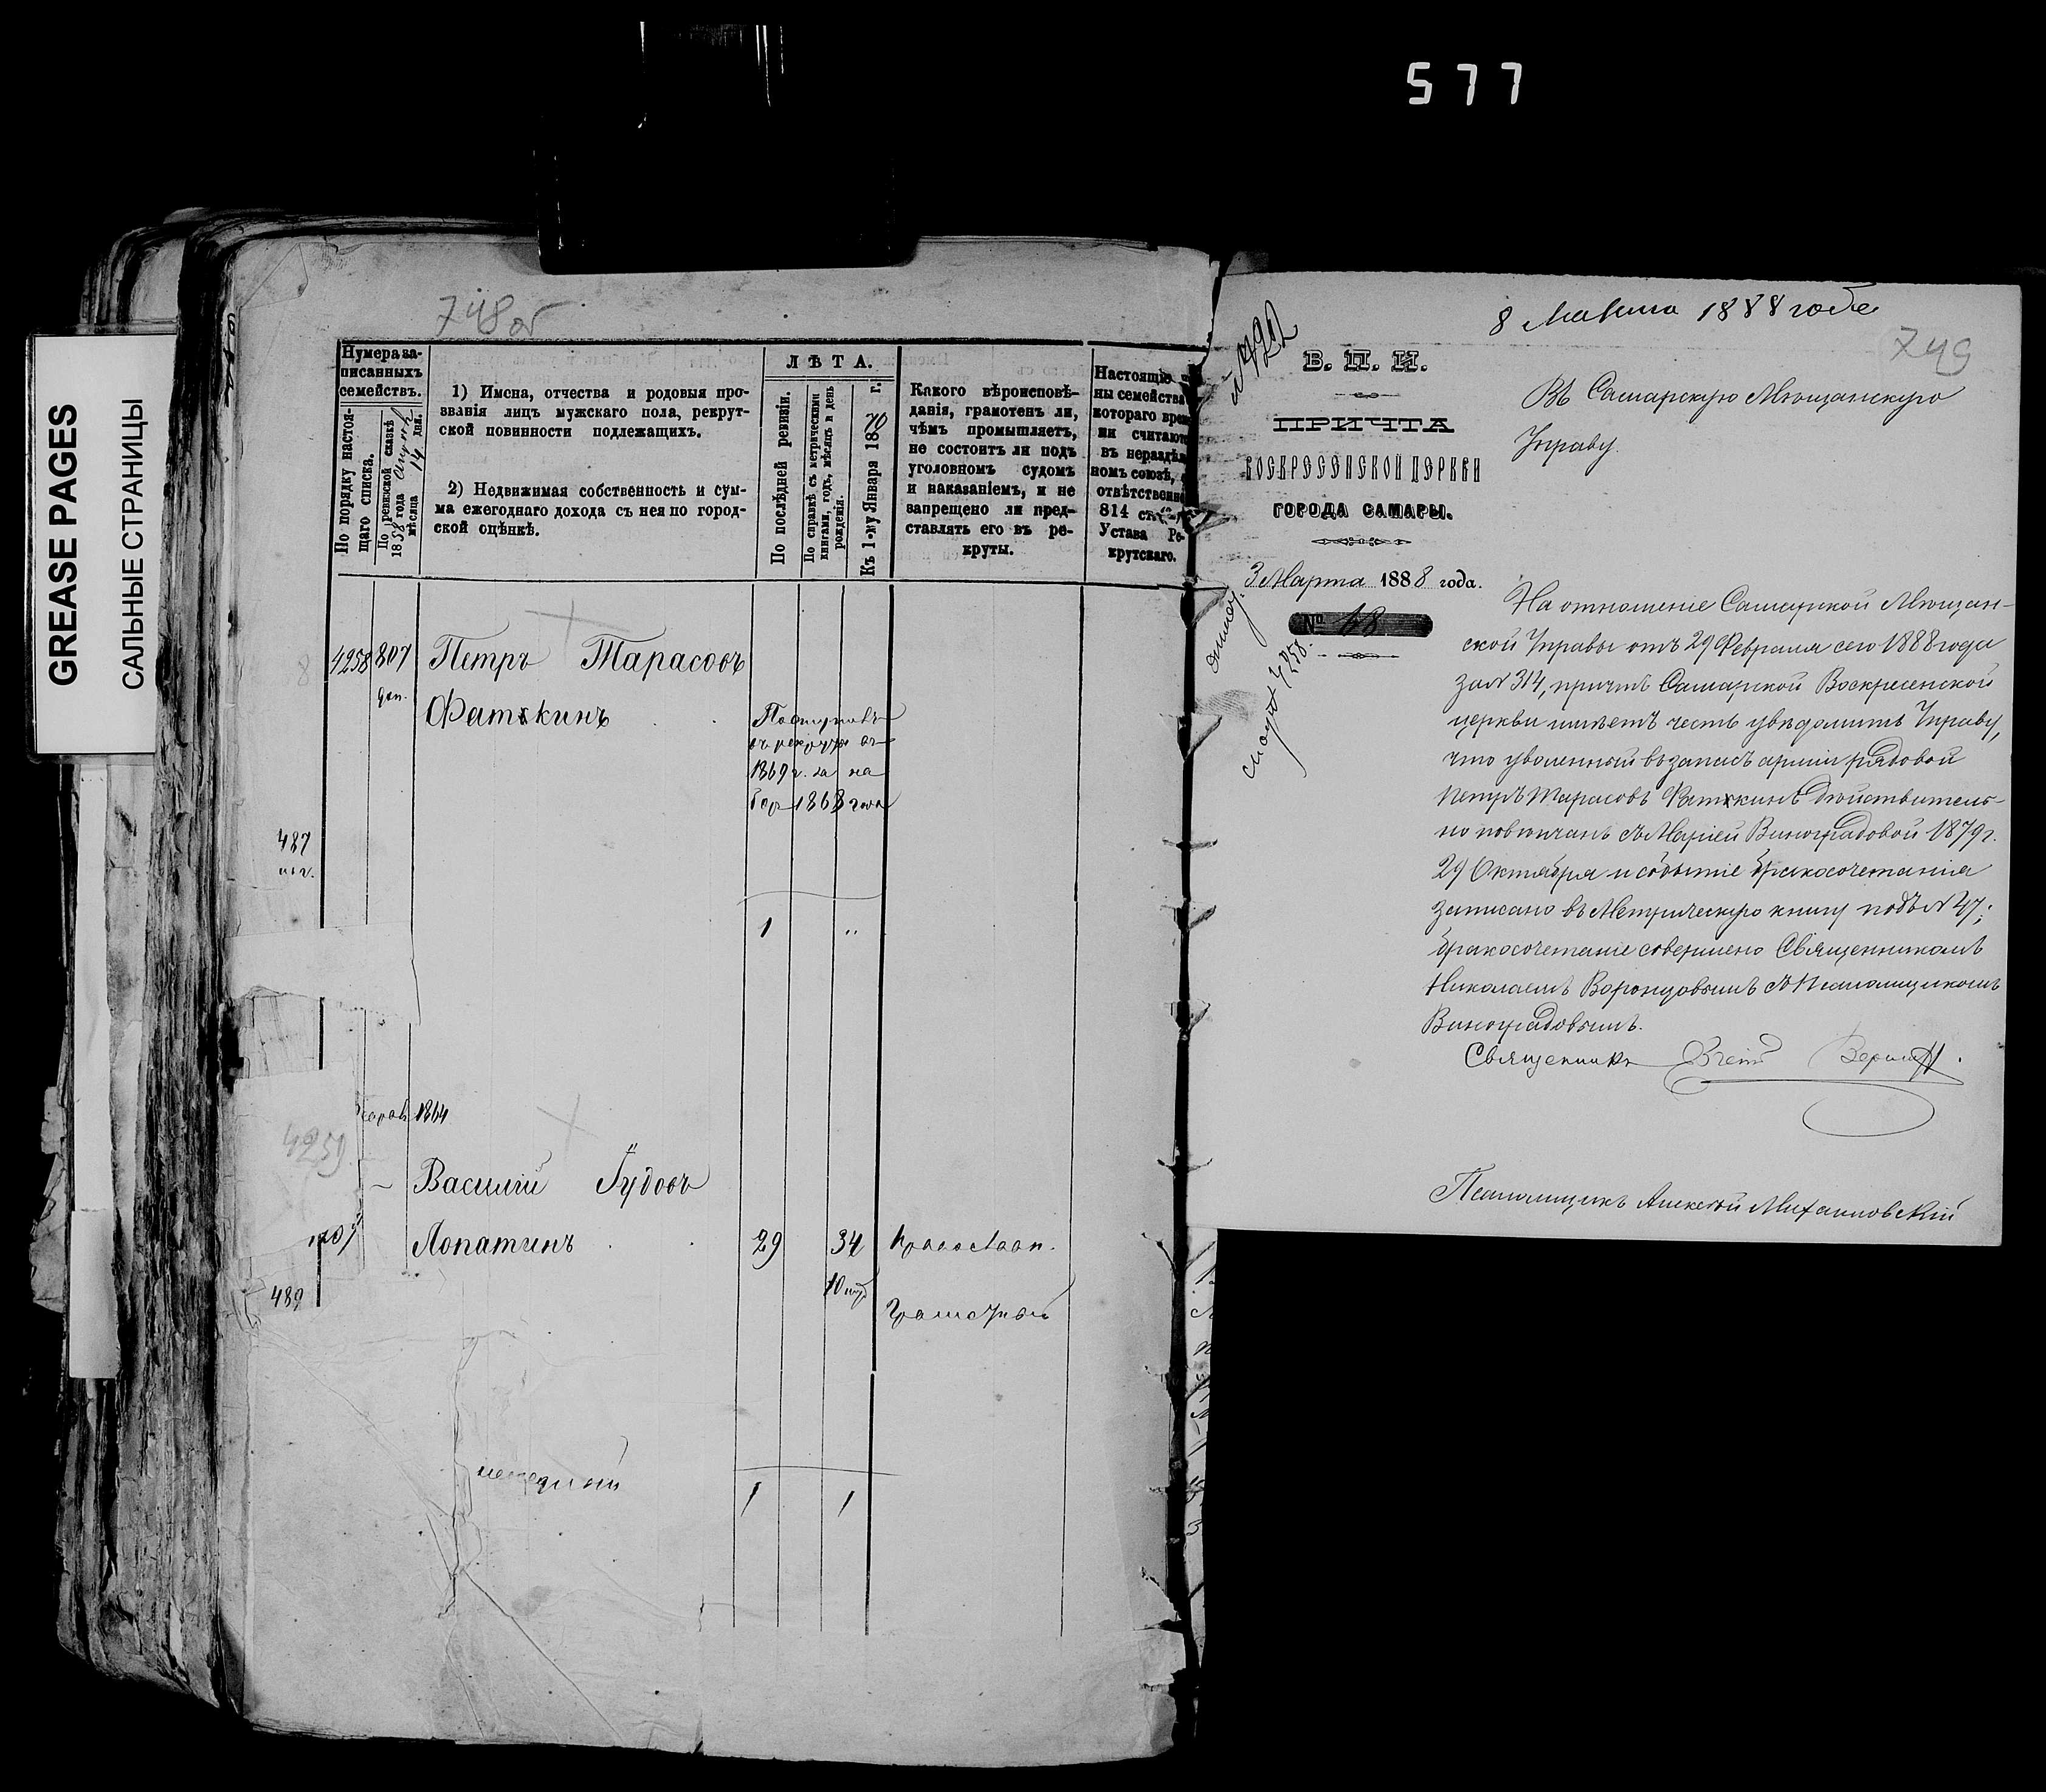 577
GREASE PAGES
САЛЬНЫЕ СТРАНИЦЫ
748об
Нумера за-
писанныхъ
семействъ.
По порядку настоя-
щаго списка.
По ревизской сказкѣ
1858 года
мѣсяца 14 дня.
1) Имена, отчества и родовыя про-
званія лицъ мужскаго пола, рекрут-
ской повинности подлежащихъ.
2) Недвижимая собственность и сум-
ма ежегоднаго дохода съ нея по город-
ской оцѣнкѣ.
ЛѢТА.
По послѣдней ревизіи.
По справкѣ съ метрическими
книгами, годъ, мѣсяцъ и день
рожденія.
Къ 1-му Января 1870 г.
Какого вѣроисповѣ-
данія, грамотенъ ли,
чѣмъ промышляетъ,
не состоитъ ли подъ
уголовномъ судомъ
и наказаніемъ, и не
запрещено ли пред-
ставлять его въ ре-
круты.
Настоящіе
ны семейства
котораго врем
ни считают
въ нераздѣл
номъ союзѣ,
отвѣтственн
814 ст.
Устава Ре-
крутскаго.
4258 807 Петръ Тарасовъ
доп. Фаткинъ
Поступилъ
въ рекруты въ
1869 г. за на
боръ 1868 года
487
1 "
1864
4259
Василій Гудовъ
Лопатинъ 29 34 Православ.
489
Грамотный
1 1
8 Марта 1888 года
749
В. П. И.
ПРИЧТА
ВОСКРЕСЕНСКОЙ ЦЕРКВИ
ГОРОДА САМАРЫ.
3 Марта 1888 года.
№ 18
4258.
Въ Самарскую Мѣщанскую
Управу.
На отношеніе Самарской Мѣщан-
ской Управы отъ 29 Февраля сего 1888 года
за № 314, причтъ Самарской Воскресенской
церкви имѣетъ честь увѣдомить Управу,
что уволенный въ запасъ арміи рядовой
Петръ Тарасовъ Фаткинъ дѣйствитель-
но повѣнчанъ съ Маріей Виноградовой 1879 г.
29 Октября и событіе бракосочетанія
записано въ Метрическую книгу подъ № 47;
бракосочетаніе совершено Священникомъ
Николаемъ Воронцовымъ съ Псаломщикомъ
Виноградовымъ.
Священникъ
Псаломщикъ Алексѣй Михайловскій